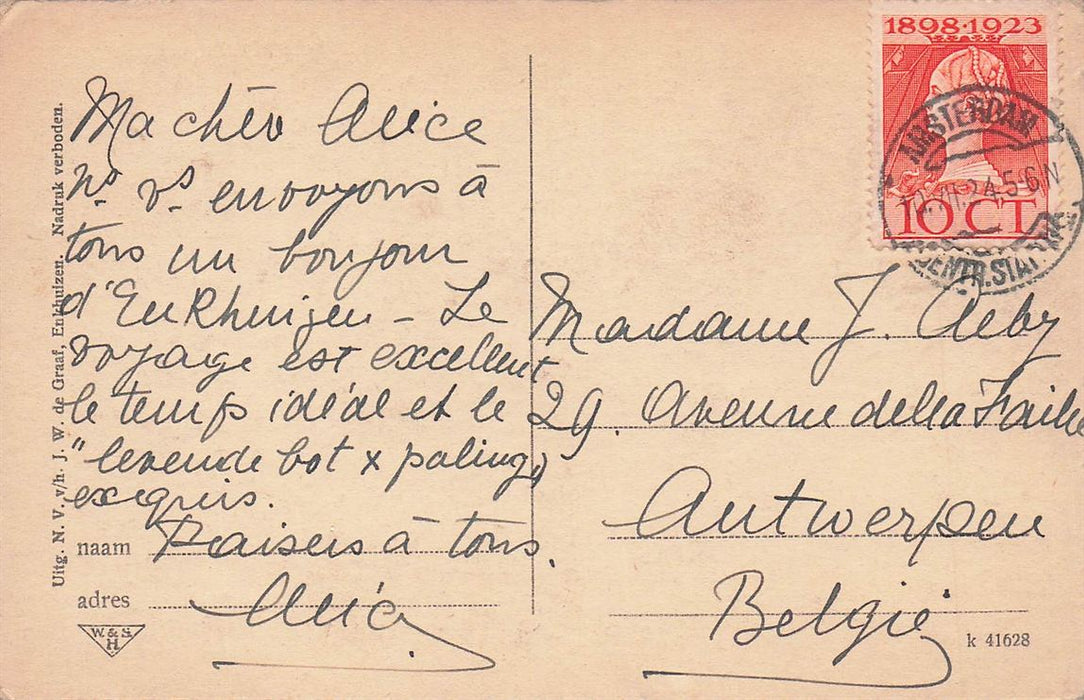 Ma chère Alice
Ns. vs. envoyons à
tous un bonjour
d'Enkhuizen - Le
voyage est excellent
le temps idéal et le
"levende bot x paling"
exquis.
Baisers à tous.
Madame J. Aeby
29. Avenue della Faille
Antwerpen
België
1898·1923
10 CT
AMSTERDAM
VII.24.5-6N
CENTR.STATION
Uitg. N. V. v/h. J. W. de Graaf, Enkhuizen. Nadruk verboden.
naam
adres
W. & S.
H.
k 41628